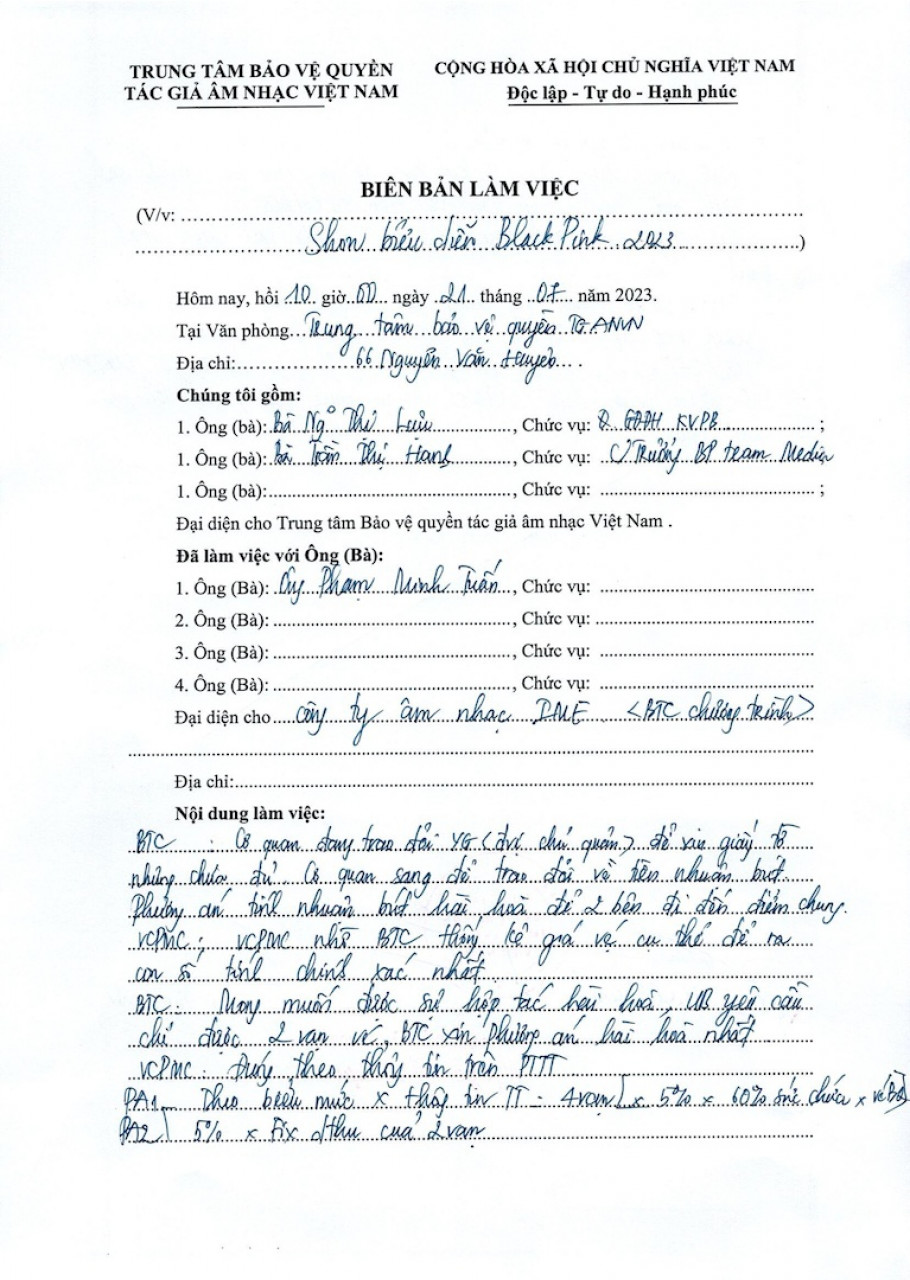 TRUNG TÂM BẢO VỆ QUYỀN
TÁC GIẢ ÂM NHẠC VIỆT NAM
CỘNG HÒA XÃ HỘI CHỦ NGHĨA VIỆT NAM
Độc lập - Tự do - Hạnh phúc
BIÊN BẢN LÀM VIỆC
(V/v: ........................................
Show biểu diễn BlackPink 2023 ........)
Hôm nay, hồi 10 giờ 00 ngày 21 tháng 07 năm 2023.
Tại Văn phòng Trung tâm bảo vệ quyền TGANVN
Địa chỉ: 66 Nguyễn Văn Huyên
Chúng tôi gồm:
1. Ông (bà): Bà Ngô Thị Lựu, Chức vụ: Q GĐĐH KVPB ;
1. Ông (bà): Bà Trần Thị Hạnh, Chức vụ: Trưởng BP team Media
1. Ông (bà): ........................, Chức vụ: ........................ ;
Đại diện cho Trung tâm Bảo vệ quyền tác giả âm nhạc Việt Nam .
Đã làm việc với Ông (Bà):
1. Ông (Bà): Phạm Minh Tuấn, Chức vụ: ........................
2. Ông (Bà): ........................, Chức vụ: ........................
3. Ông (Bà): ........................, Chức vụ: ........................
4. Ông (Bà): ........................, Chức vụ: ........................
Đại diện cho công ty âm nhạc IME <BTC chương trình>
Địa chỉ: ........................
Nội dung làm việc:
BTC : Cơ quan đang trao đổi YG <đvị chủ quản> để xin giấy tờ
nhưng chưa đủ. Cơ quan sang để trao đổi về tiền nhuận bút.
Phương án tính nhuận bút hài hoà để 2 bên đi đến điểm chung.
VCPMC : VCPMC nhờ BTC thống kê giá vé cụ thể để ra
con số tính chính xác nhất
BTC : Mong muốn được sự hợp tác hài hoà, UB yêu cầu
chỉ được 2 vạn vé, BTC xin phương án hài hoà nhất
VCPMC : Đúng theo thông tin trên PTTT
PA1 Theo biểu mức x thông tin TT - 4 vạn x 5% x 60% sức chứa x vé BQ
PA2 5% x Fix dthu của 2 vạn